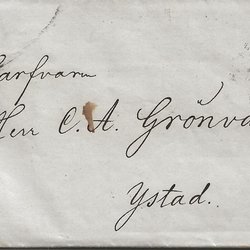 arfvarn
Herr C. A. Grönva
Ystad.